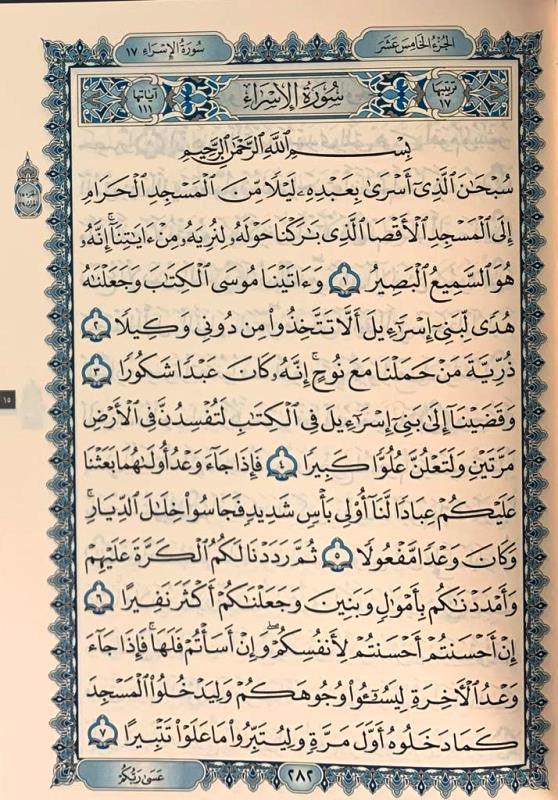 الجُزْءُ الخَامِسَ عَشَرَ
سُورَةُ الإِسْرَاءِ ١٧
تَرْتِيبُهَا ١٧
سُورَةُ الإِسْرَاءِ
آيَاتُهَا ١١١
بِسْمِ ٱللَّهِ ٱلرَّحْمَٰنِ ٱلرَّحِيمِ
سُبْحَٰنَ ٱلَّذِىٓ أَسْرَىٰ بِعَبْدِهِۦ لَيْلًا مِّنَ ٱلْمَسْجِدِ ٱلْحَرَامِ
إِلَى ٱلْمَسْجِدِ ٱلْأَقْصَا ٱلَّذِى بَٰرَكْنَا حَوْلَهُۥ لِنُرِيَهُۥ مِنْ ءَايَٰتِنَآ ۚ إِنَّهُۥ
هُوَ ٱلسَّمِيعُ ٱلْبَصِيرُ ١ وَءَاتَيْنَا مُوسَى ٱلْكِتَٰبَ وَجَعَلْنَٰهُ
هُدًى لِّبَنِىٓ إِسْرَٰٓءِيلَ أَلَّا تَتَّخِذُوا۟ مِن دُونِى وَكِيلًا ٢
ذُرِّيَّةَ مَنْ حَمَلْنَا مَعَ نُوحٍ ۚ إِنَّهُۥ كَانَ عَبْدًا شَكُورًا ٣
وَقَضَيْنَآ إِلَىٰ بَنِىٓ إِسْرَٰٓءِيلَ فِى ٱلْكِتَٰبِ لَتُفْسِدُنَّ فِى ٱلْأَرْضِ
مَرَّتَيْنِ وَلَتَعْلُنَّ عُلُوًّا كَبِيرًا ٤ فَإِذَا جَآءَ وَعْدُ أُولَىٰهُمَا بَعَثْنَا
عَلَيْكُمْ عِبَادًا لَّنَآ أُو۟لِى بَأْسٍ شَدِيدٍ فَجَاسُوا۟ خِلَٰلَ ٱلدِّيَارِ ۚ
وَكَانَ وَعْدًا مَّفْعُولًا ٥ ثُمَّ رَدَدْنَا لَكُمُ ٱلْكَرَّةَ عَلَيْهِمْ
وَأَمْدَدْنَٰكُم بِأَمْوَٰلٍ وَبَنِينَ وَجَعَلْنَٰكُمْ أَكْثَرَ نَفِيرًا ٦
إِنْ أَحْسَنتُمْ أَحْسَنتُمْ لِأَنفُسِكُمْ ۖ وَإِنْ أَسَأْتُمْ فَلَهَا ۚ فَإِذَا جَآءَ
وَعْدُ ٱلْءَاخِرَةِ لِيَسُۥٓـُٔوا۟ وُجُوهَكُمْ وَلِيَدْخُلُوا۟ ٱلْمَسْجِدَ
كَمَا دَخَلُوهُ أَوَّلَ مَرَّةٍ وَلِيُتَبِّرُوا۟ مَا عَلَوْا۟ تَتْبِيرًا ٧
٢٨٢
عَسَىٰ رَبُّكُمْ
١٥